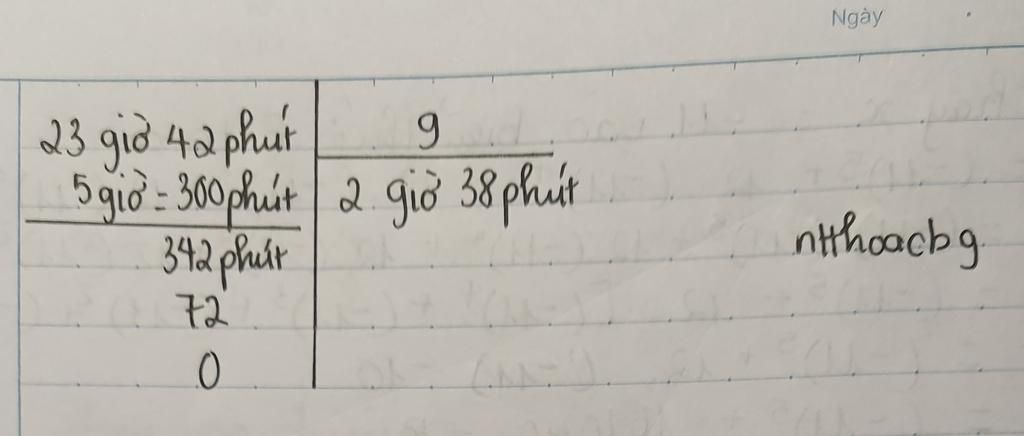 Ngày
23 giờ 42 phút 9
5 giờ = 300 phút 2 giờ 38 phút
342 phút
nHhoacbg
72
0